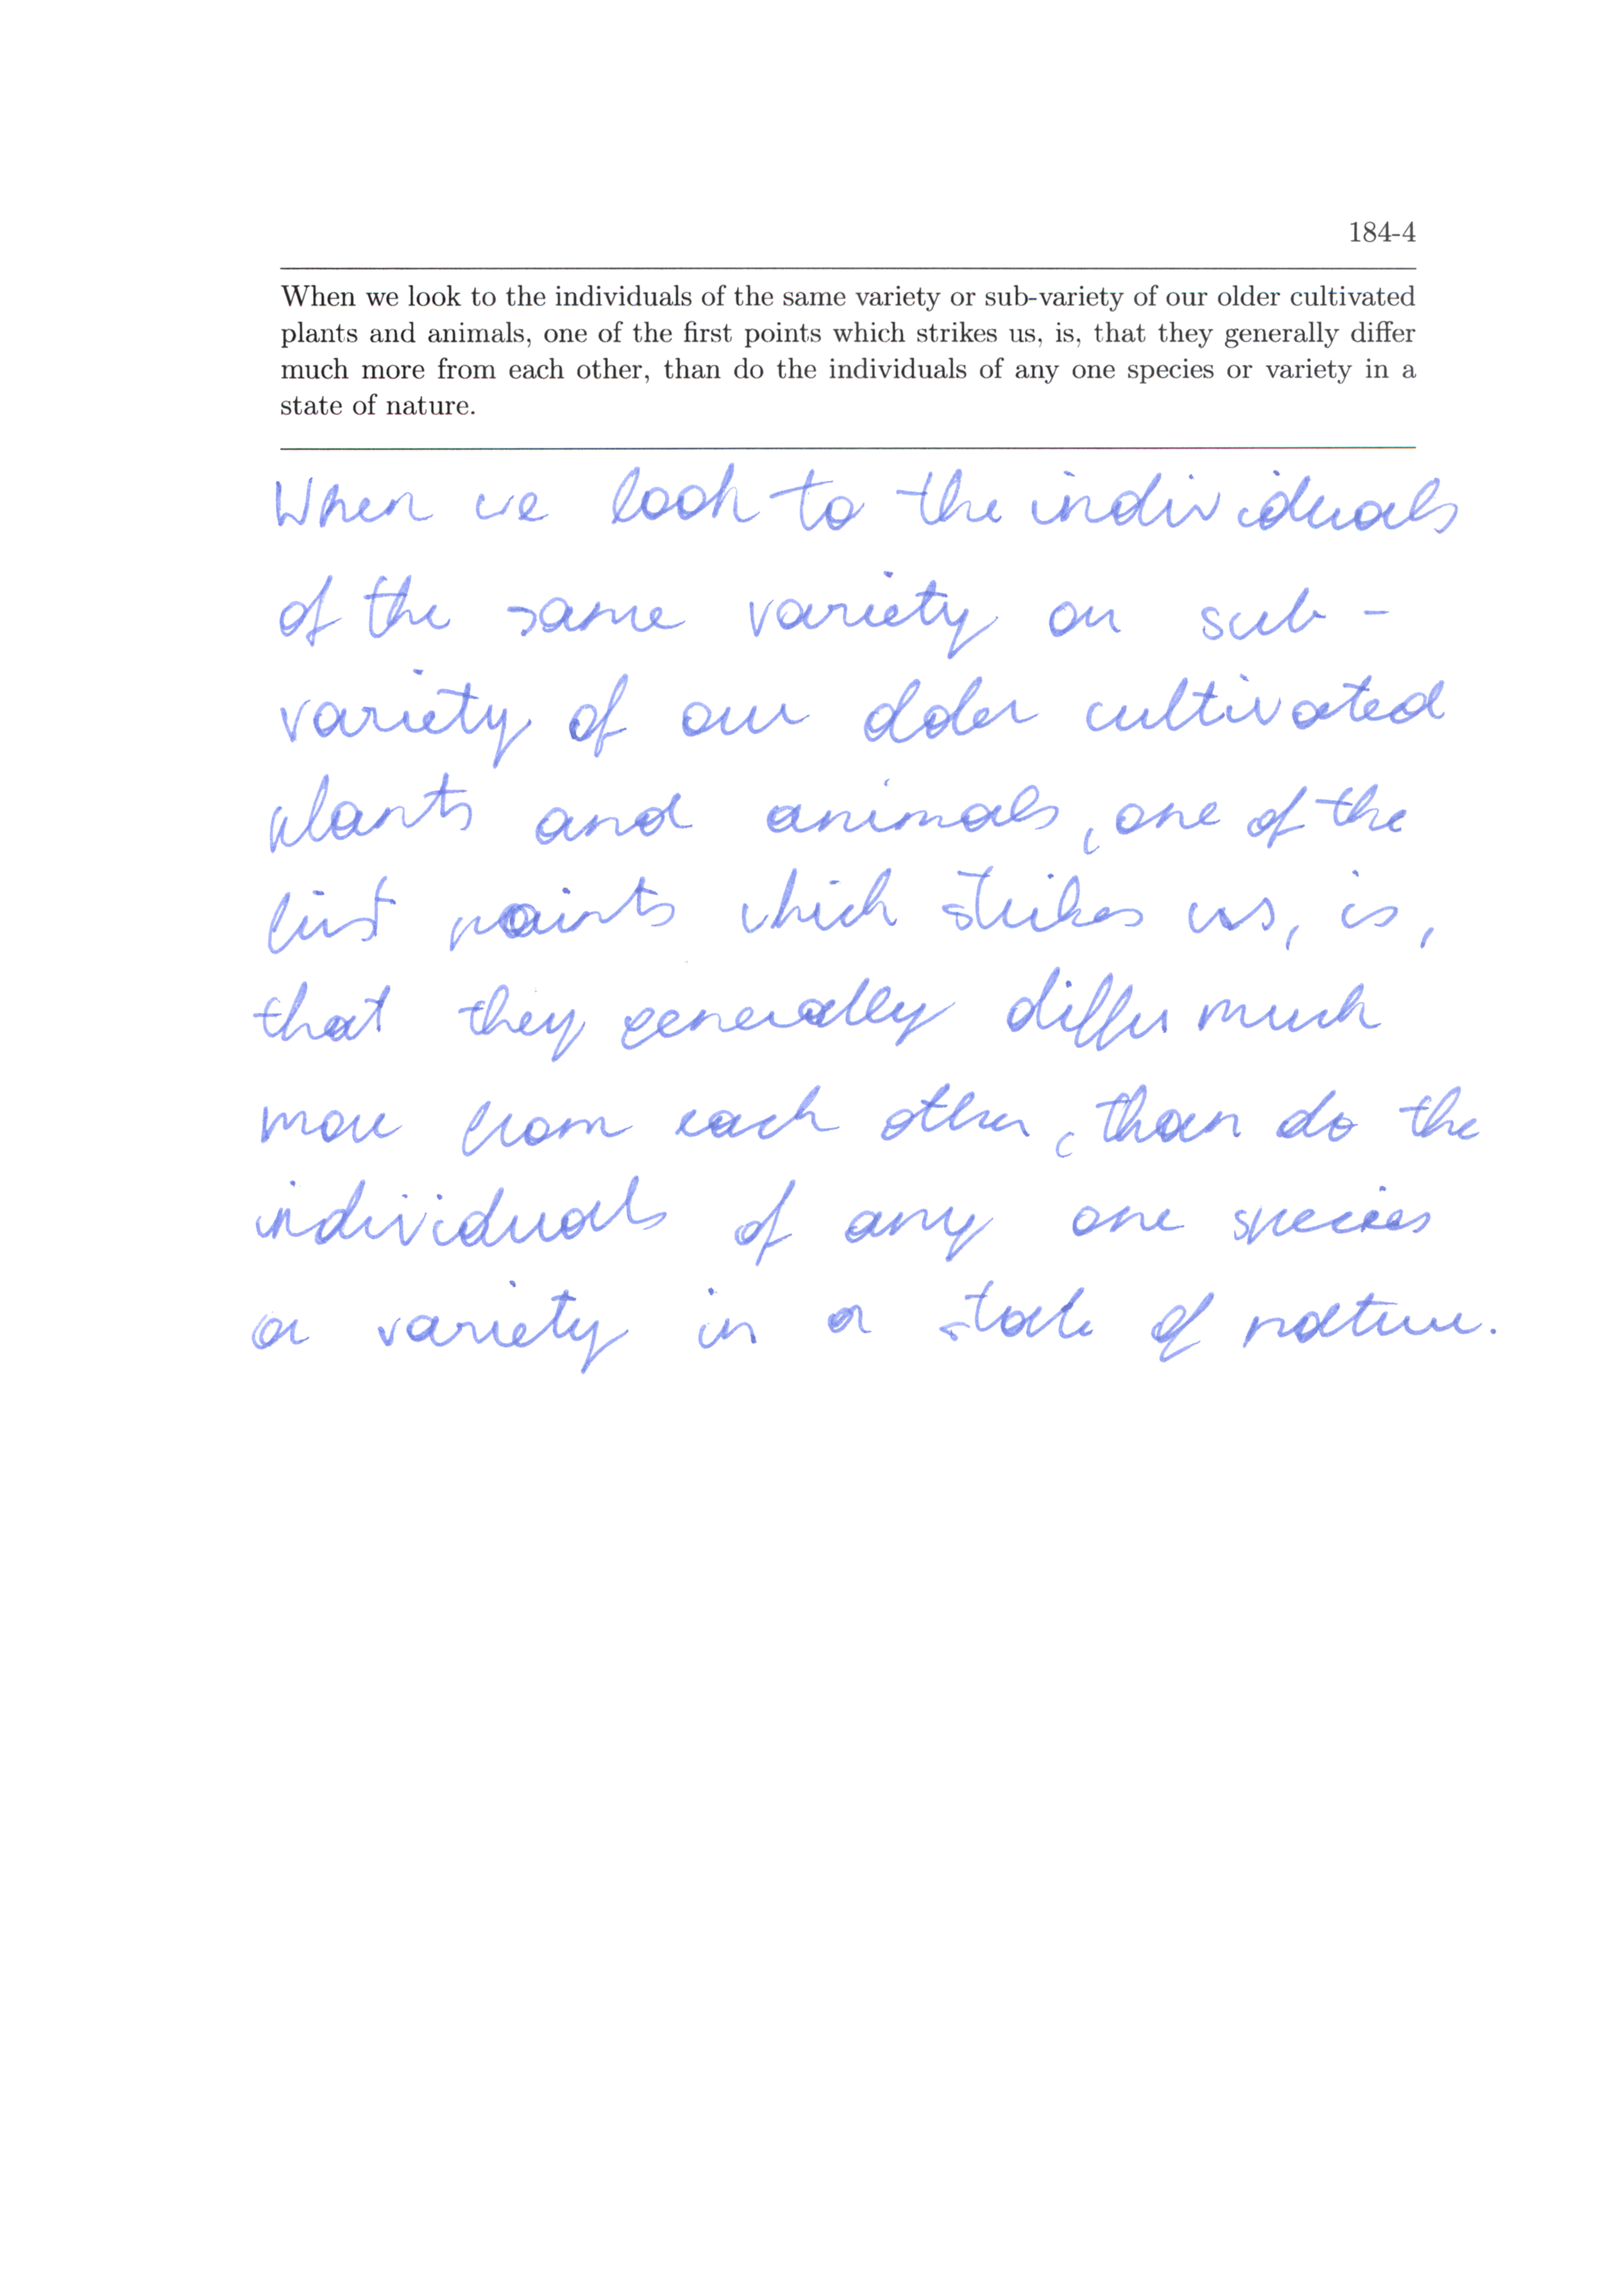 184-4
When we look to the individuals of the same variety or sub-variety of our older cultivated
plants and animals, one of the first points which strikes us, is, that they generally differ
much more from each other, than do the individuals of any one species or variety in a
state of nature.
When we look to the individuals
of the same variety or sub -
variety of our older cultivated
plants and animals, one of the
first points which strikes us, is,
that they generally differ much
more from each other, than do the
individuals of any one species
or variety in a state of nature.